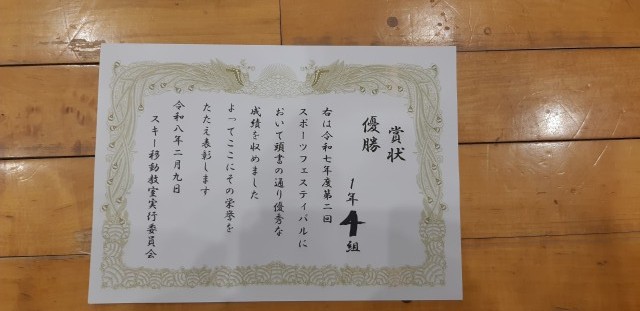 賞状
優勝
1年4組
右は令和七年度第二回
スポーツフェスティバルに
おいて頭書の通り優秀な
成績を収めました
よってここにその栄誉を
たたえ表彰します
令和八年二月九日
スキー移動教室実行委員会